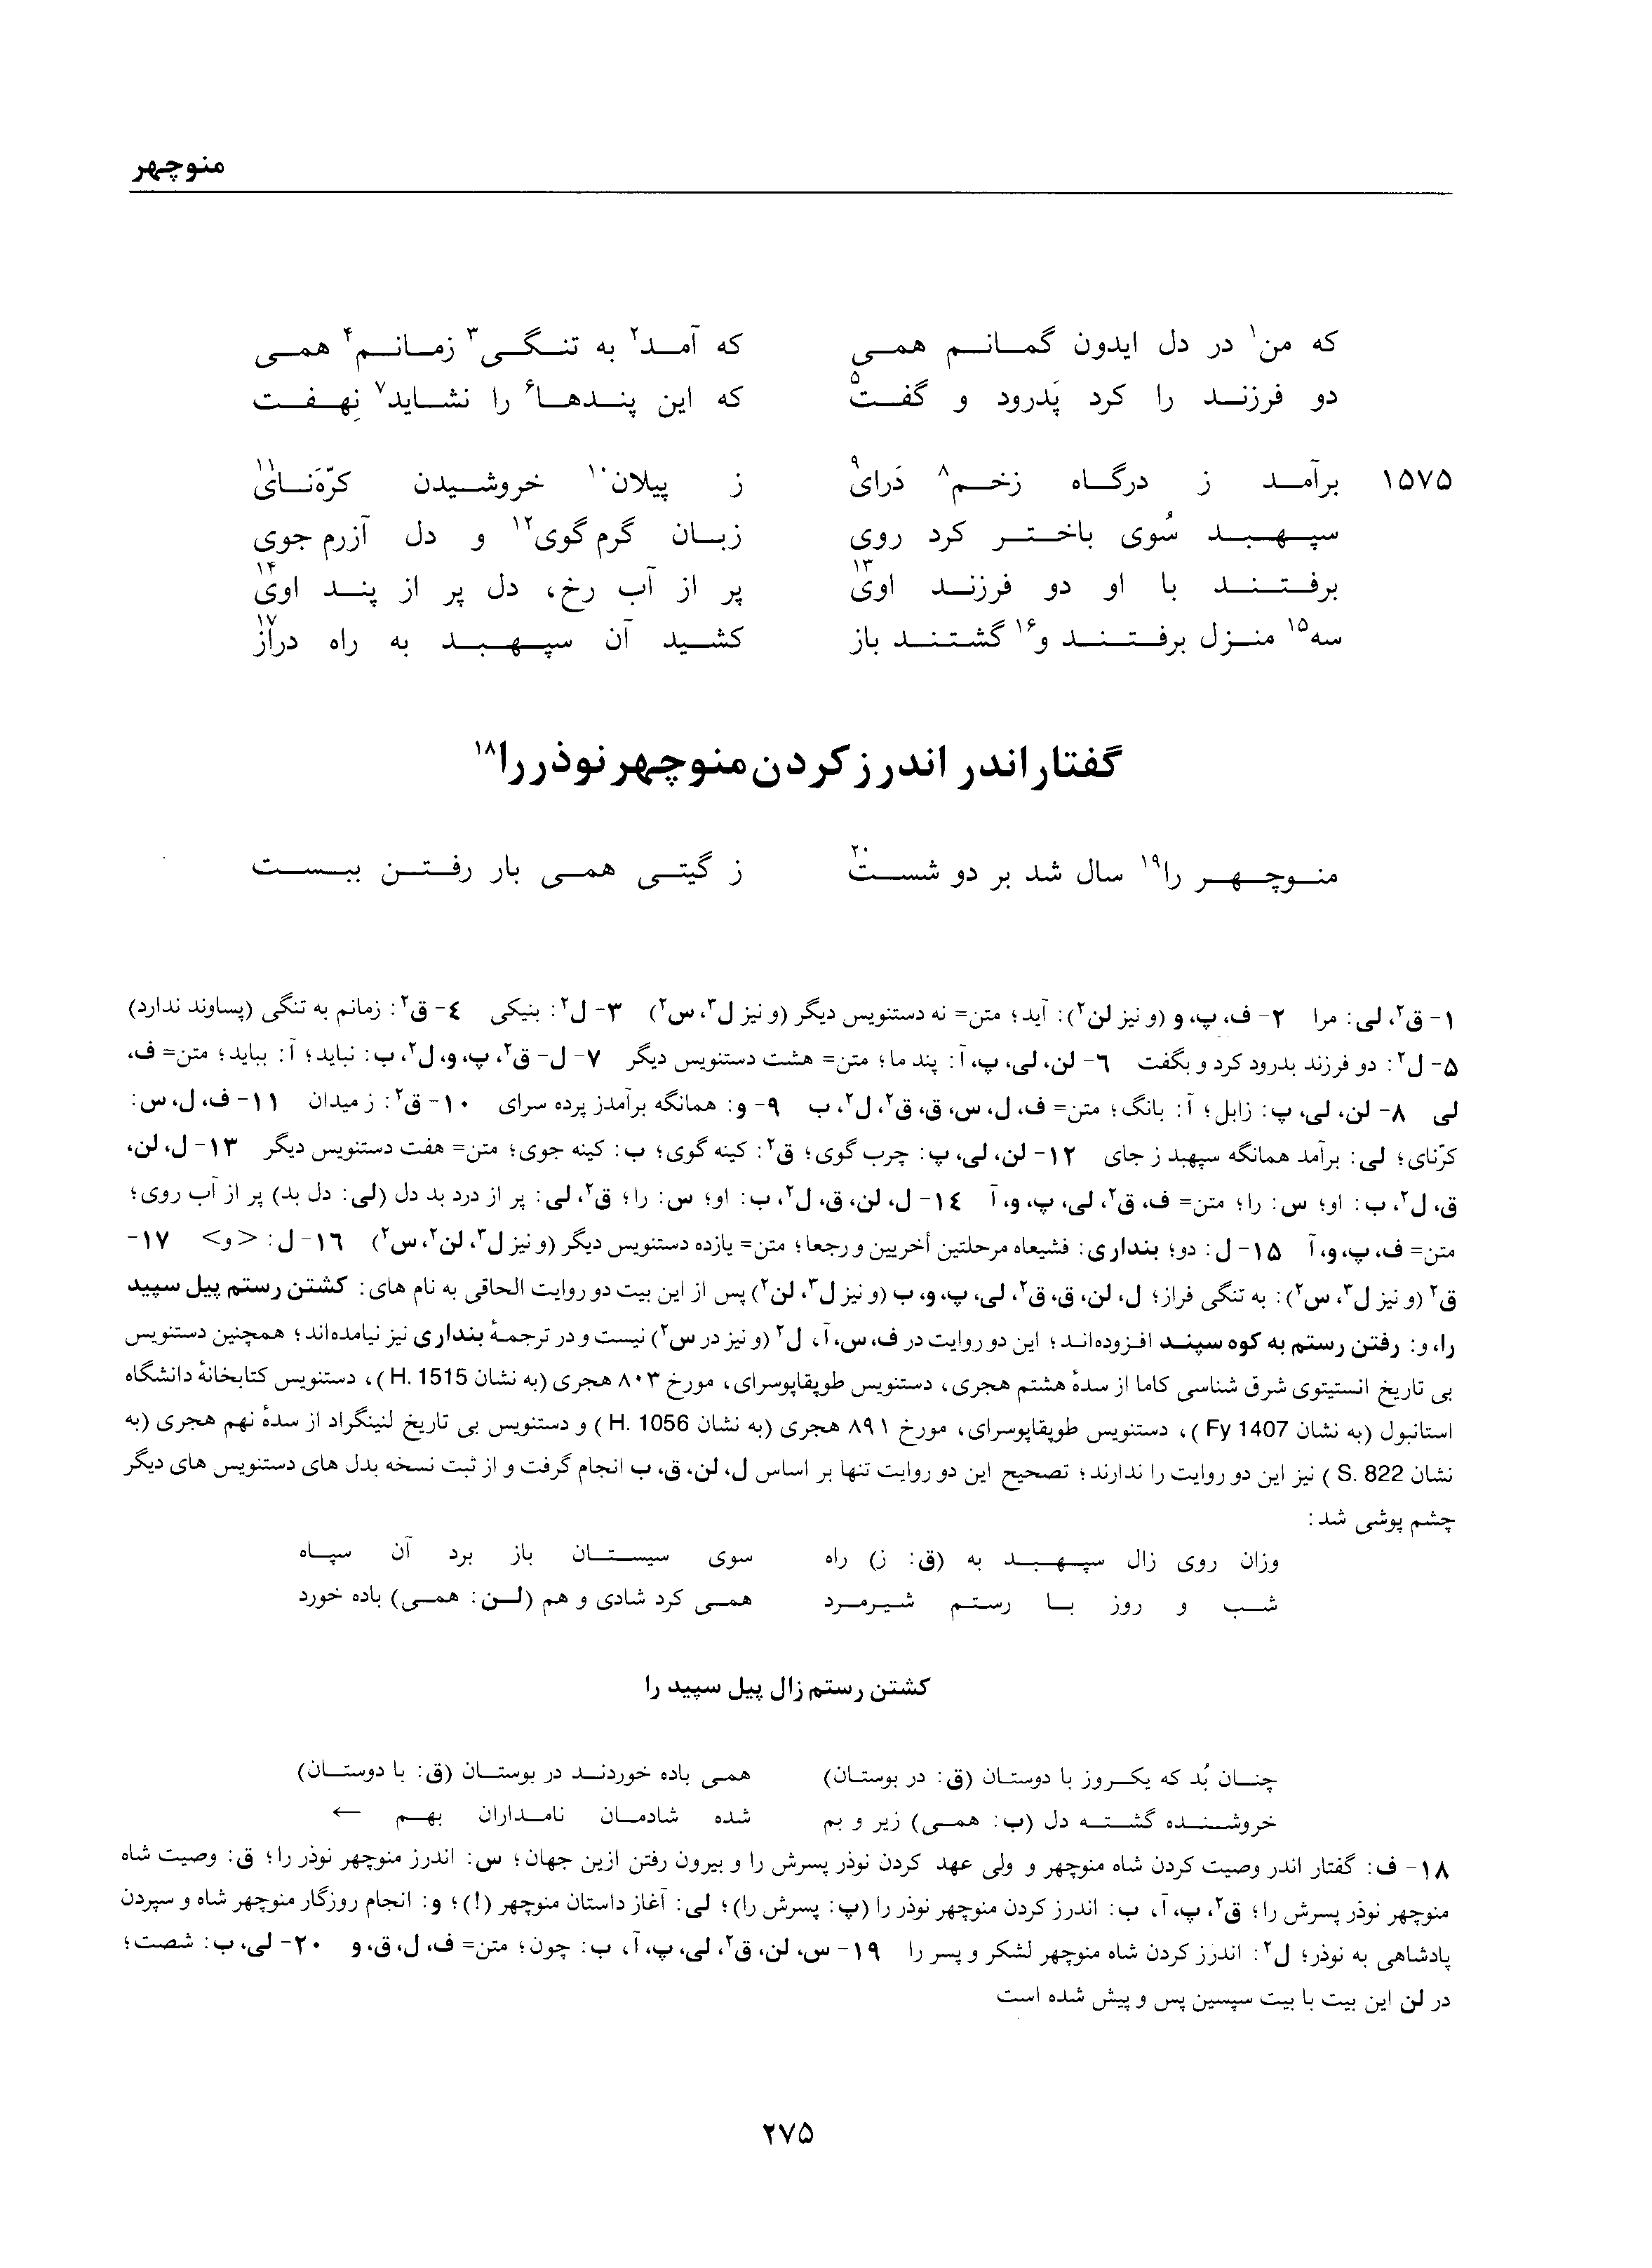 منوچهر
که من۱ در دل ایدون گمانم همی که آمد۲ به تنگی۳ زمانم۴ همی
دو فرزند را کرد پَدرود و گفت۵ که این پندها۶ را نشاید۷ نِهفت
۱۵۷۵ برآمد ز درگاه زخم۸ دَرای۹ ز پیلان۱۰ خروشیدن کرّه‌نَای۱۱
سپهبد سُوی باختر کرد روی زبان گرم گوی۱۲ و دل آزرم جوی
برفتند با او دو فرزند اوی۱۳ پر از آب رخ، دل پر از پند اوی۱۴
سه۱۵ منزل برفتند و۱۶ گشتند باز کشید آن سپهبد به راه دراز۱۷
گفتار اندر اندرز کردن منوچهر نوذر را۱۸
منوچهر را۱۹ سال شد بر دو شست۲۰ ز گیتی همی بار رفتن ببست
۱- ق۲، لی: مرا ۲- ف، پ، و (و نیز لن۲): آید؛ متن= نه دستنویس دیگر (و نیز ل۳، س۲) ۳- ل۲: بنیکی ۴- ق۲: زمانم به تنگی (پساوند ندارد)
۵- ل۲: دو فرزند بدرود کرد و بگفت ۶- لن، لی، پ، آ: پند ما؛ متن= هشت دستنویس دیگر ۷- ل- ق۲، پ، و، ل۲، ب: نباید؛ آ: بباید؛ متن= ف،
لی ۸- لن، لی، پ: زابل؛ آ: بانگ؛ متن= ف، ل، س، ق، ق۲، ل۲، ب ۹- و: همانگه برآمدز پرده سرای ۱۰- ق۲: ز میدان ۱۱- ف، ل، س:
کرّنای؛ لی: برآمد همانگه سپهبد ز جای ۱۲- لن، لی، پ: چرب گوی؛ ق۲: کینه گوی؛ ب: کینه جوی؛ متن= هفت دستنویس دیگر ۱۳- ل، لن،
ق، ل۲، ب: او؛ س: را؛ متن= ف، ق۲، لی، پ، و، آ ۱۴- ل، لن، ق، ل۲، ب: او؛ س: را؛ ق۲، لی: پر از درد بد دل (لی: دل بد) پر از آب روی؛
متن= ف، پ، و، آ ۱۵- ل: دو؛ بنداری: فشیعاه مرحلتین أخریین و رجعا؛ متن= یازده دستنویس دیگر (و نیز ل۳، لن۲، س۲) ۱۶- ل: <و> ۱۷-
ق۲ (و نیز ل۳، س۲): به تنگی فراز؛ ل، لن، ق، ق۲، لی، پ، و، ب (و نیز ل۳، لن۲) پس از این بیت دو روایت الحاقی به نام های: کشتن رستم پیل سپید
را، و: رفتن رستم به کوه سپند افزوده‌اند؛ این دو روایت در ف، س، آ، ل۲ (و نیز در س۲) نیست و در ترجمهٔ بنداری نیز نیامده‌اند؛ همچنین دستنویس
بی تاریخ انستیتوی شرق شناسی کاما از سدهٔ هشتم هجری، دستنویس طوپقاپوسرای، مورخ ۸۰۳ هجری (به نشان H. 1515)، دستنویس کتابخانهٔ دانشگاه
استانبول (به نشان Fy 1407)، دستنویس طوپقاپوسرای، مورخ ۸۹۱ هجری (به نشان H. 1056) و دستنویس بی تاریخ لنینگراد از سدهٔ نهم هجری (به
نشان S. 822) نیز این دو روایت را ندارند؛ تصحیح این دو روایت تنها بر اساس ل، لن، ق، ب انجام گرفت و از ثبت نسخه بدل های دستنویس های دیگر
چشم پوشی شد:
وزان روی زال سپهبد به (ق: ز) راه سوی سیستان باز برد آن سپاه
شب و روز با رستم شیرمرد همی کرد شادی و هم (لن: همی) باده خورد
کشتن رستم زال پیل سپید را
چنان بُد که یکروز با دوستان (ق: در بوستان) همی باده خوردند در بوستان (ق: با دوستان)
خروشنده گشته دل (ب: همی) زیر و بم شده شادمان نامداران بهم ←
۱۸- ف: گفتار اندر وصیت کردن شاه منوچهر و ولی عهد کردن نوذر پسرش را و بیرون رفتن ازین جهان؛ س: اندرز منوچهر نوذر را؛ ق: وصیت شاه
منوچهر نوذر پسرش را؛ ق۲، پ، آ، ب: اندرز کردن منوچهر نوذر را (پ: پسرش را)؛ لی: آغاز داستان منوچهر (!)؛ و: انجام روزگار منوچهر شاه و سپردن
پادشاهی به نوذر؛ ل۲: اندرز کردن شاه منوچهر لشکر و پسر را ۱۹- س، لن، ق۲، لی، پ، آ، ب: چون؛ متن= ف، ل، ق، و ۲۰- لی، ب: شصت؛
در لن این بیت با بیت سپسین پس و پیش شده است
۲۷۵